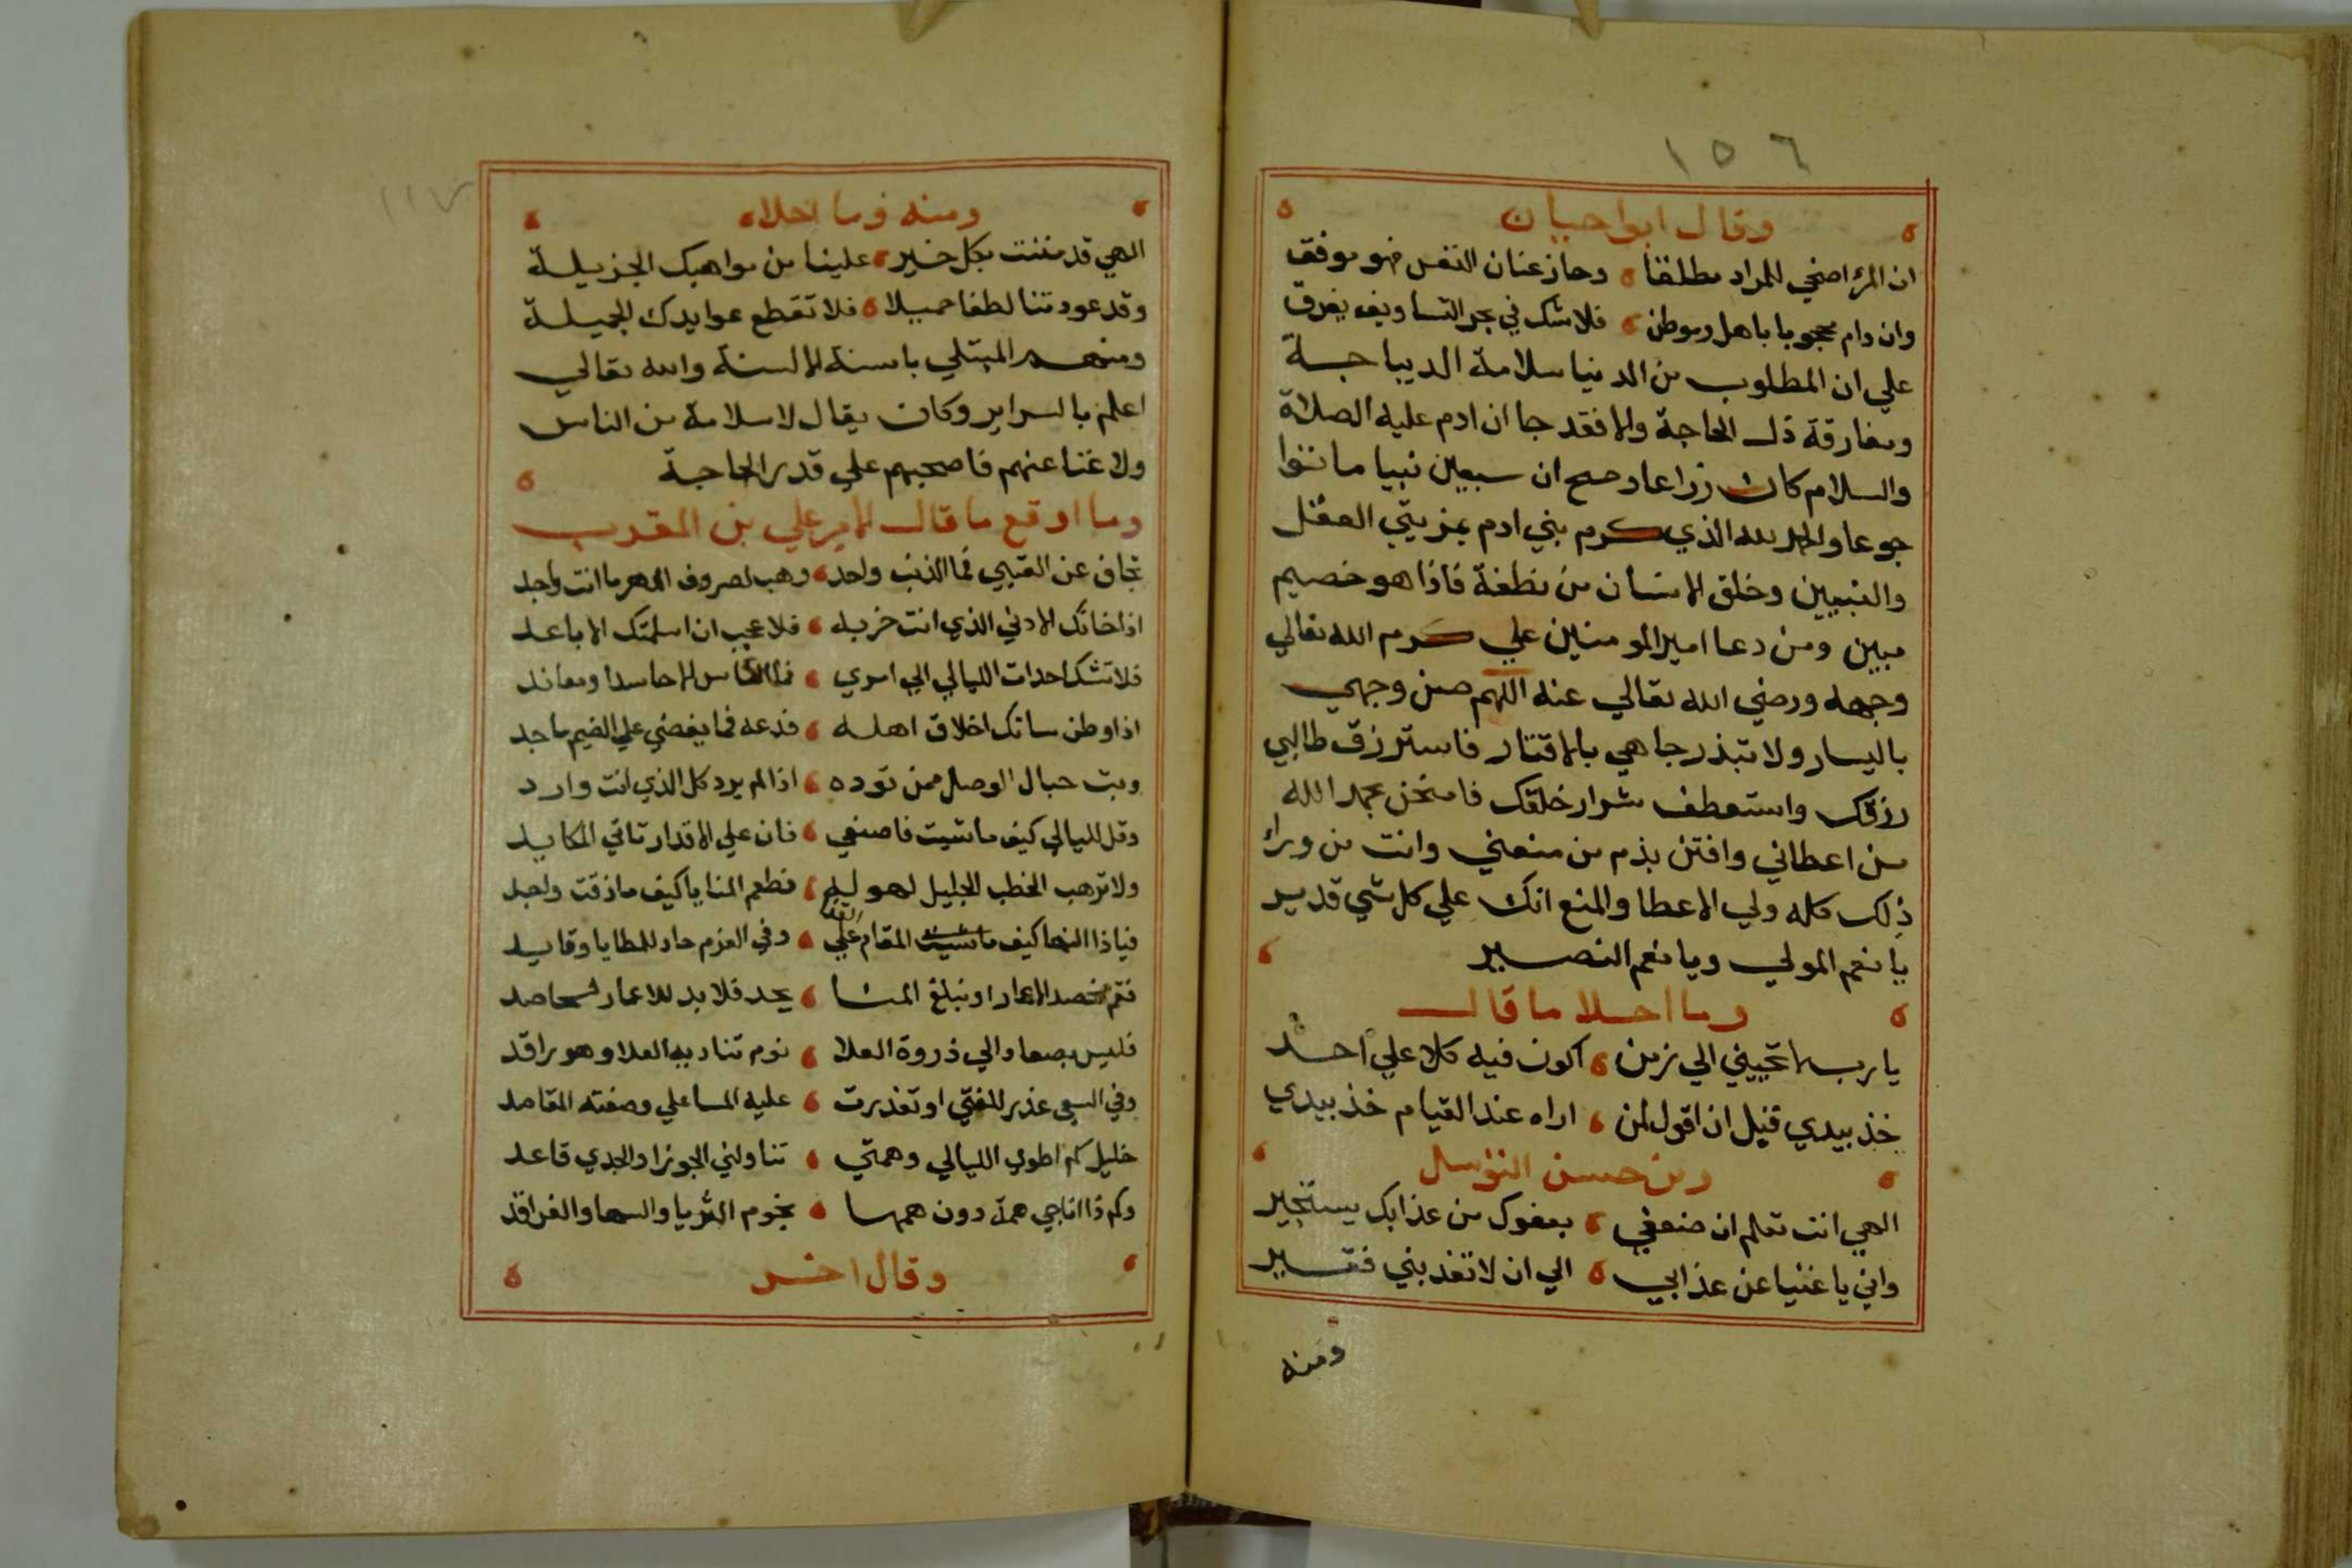 ١٥٦
وقال ابوا حيان
ان المرء اضحي للمراد مطلقا وحاز عنان النفس فهو موفق
وان دام محجوبا باهل وموطن فلا شك في بحر التساويف يغرق
علي ان المطلوب من الدنيا سلامة الديباجة
ومفارقة ذل الحاجة والا فقد جا ان ادم عليه الصلاة
والسلام كان زراعا وصح ان سبعين نبيا ماتوا
جوعا والحمد لله الذي كرم بني ادم بمزيتي العقل
والتبيين وخلق الانسان من نطفة فاذا هو خصيم
مبين ومن دعا امير المومنين علي كرم الله تعالي
وجهه ورضي الله تعالي عنه اللهم صن وجهي
باليسار ولا تبذر جاهي بالاقتار فاسترزق طالبي
رزقك واستعطف شرار خلقك فامتحن بحمد الله
من اعطاني وافتن بذم من منعني وانت من وراء
ذلك كله ولي الاعطا والمنع انك علي كل شي قدير
يا نعم المولي ويا نعم النصير
وما احلا ما قال
يا رب لا تحييني الي زمن اكون فيه كلا علي احد
خذ بيدي قبل ان اقول لمن اراه عند القيام خذ بيدي
ومن حسن التوسل
الهي انت تعلم ان ضعفي بعفوك من عذابك يستجير
واني يا غنيا عن عذابي الي ان لا تعذبني فقير
ومنه
١١٧
ومنه وما احلاه
الهي قد مننت بكل خير علينا من مواهبك الجزيلة
وقد عودتنا لطفا جميلا فلا تقطع عوايدك الجميلة
ومنهم المبتلي بالسنة الالسنة والله تعالي
اعلم بالسراير وكان يقال لا سلامة من الناس
ولا غنا عنهم فاصحبهم علي قدر الحاجة
وما اوقع ما قال الامير علي بن المقرب
تجاف عن العتبي فما الذنب واحد وهب لصروف الدهر ما انت واجد
اذا خانك الادني الذي انت حزبه فلا عجب ان اسلمتك الاباعد
فلا تشك احداث الليالي الي امري فما الناس الا حاسد او معاند
اذا وطن ساتك اخلاق اهله فدعه فما يغضي علي الضيم ماجد
وبت حبال الوصل ممن توده اذا لم يرد كل الذي انت وارد
وقل لليالي كيف ما شيت فاصنعي فان علي الاقدار تاتي المكايد
ولا ترهب الخطب الجليل لهوله فطعم المنايا كيف ما ذقت واحد
فياذا النها كيف المقام علي وفي العزم حاد للمطايا وقايد
فقم نحصد الاعمار او نبلغ المنا بجد فلا بد للاعمار حاصد
فليس بصعاد الي ذروة العلا نوم تناديه العلا وهو راقد
وفي السعي عذر للفتي او تعذرت عليه المساعي وصفته المقاصد
خليل كم اطوي الليالي وهمتي تناولني الجوزا والجدي قاعد
وكم ذا اناجي همة دون همها نجوم الثريا والسها والفراقد
وقال اخر